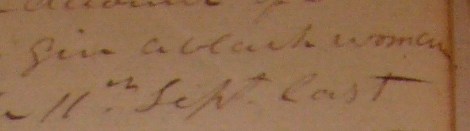 gin a black women
11th Sept. last